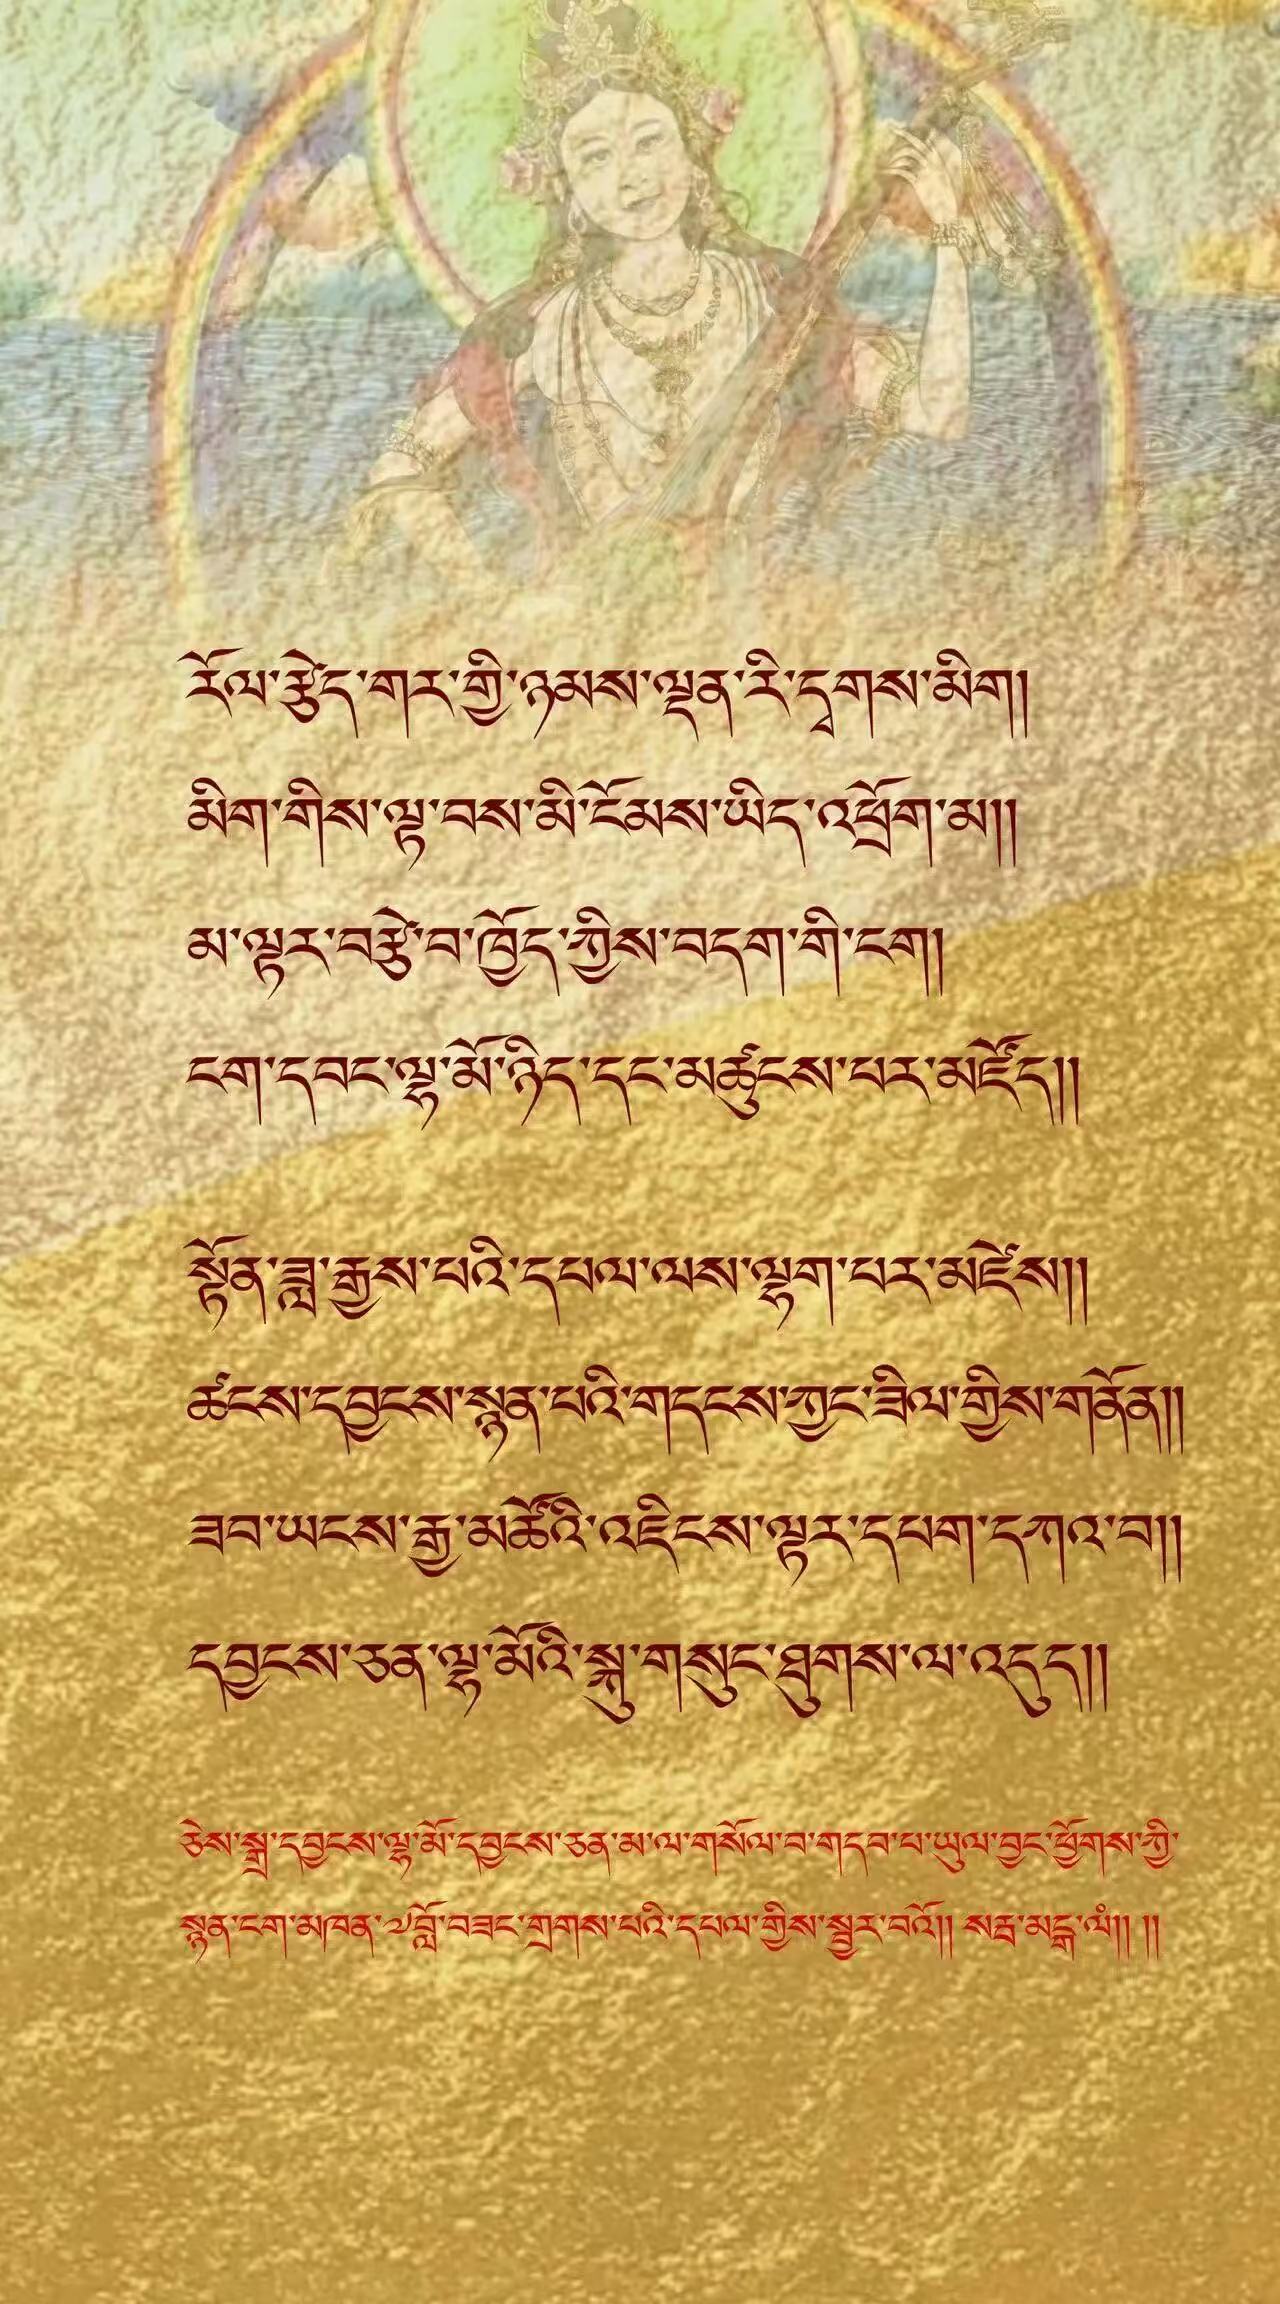 རོལ་རྩེད་གར་གྱི་ཉམས་ལྡན་རི་དྭགས་མིག།
མིག་གིས་ལྟ་བས་མི་ངོམས་ཡིད་འཕྲོག་མ།།
མ་ལྟར་བརྩེ་བ་ཁྱོད་ཀྱིས་བདག་གི་ངག།
ངག་དབང་ལྷ་མོ་ཉིད་དང་མཚུངས་པར་མཛོད།།
སྟོན་ཟླ་རྒྱས་པའི་དཔལ་ལས་ལྷག་པར་མཛེས།།
ཚངས་དབྱངས་སྙན་པའི་གདངས་ཀྱང་ཟིལ་གྱིས་གནོན།།
ཟབ་ཡངས་རྒྱ་མཚོའི་འཇིངས་ལྟར་དཔག་དཀའ་བ།།
དབྱངས་ཅན་ལྷ་མོའི་སྐུ་གསུང་ཐུགས་ལ་འདུད།།
ཅེས་སྒྲ་དབྱངས་ལྷ་མོ་དབྱངས་ཅན་མ་ལ་གསོལ་བ་གདབ་པ་ཡུལ་བྱང་ཕྱོགས་ཀྱི་
སྙན་ངག་མཁན་༧བློ་བཟང་གྲགས་པའི་དཔལ་གྱིས་སྦྱར་བའོ།། སརྦ་མངྒ་ལཾ།། །།